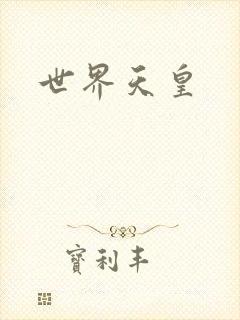 世界天皇
寶利丰